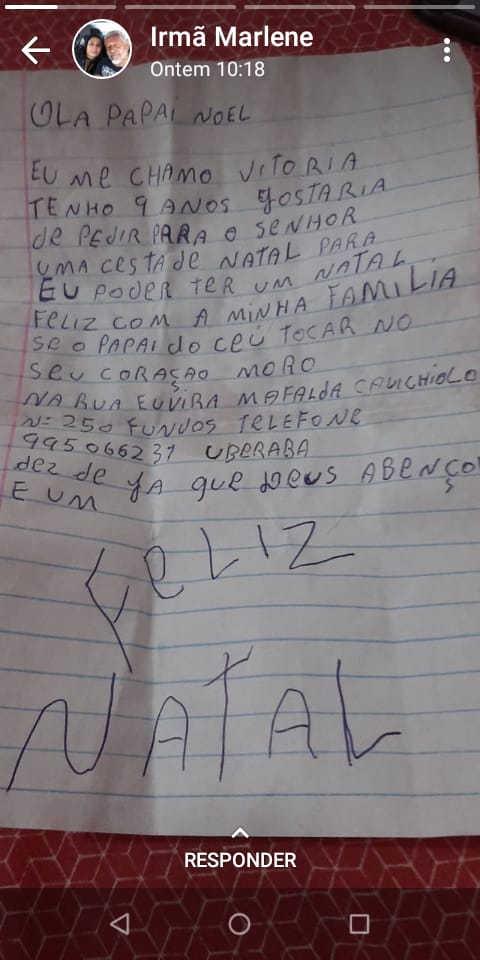 Irmã Marlene
Ontem 10:18
OLA PAPAI NOEL
EU ME CHAMO VITORIA
TENHO 9 ANOS GOSTARIA
de PEDIR PARA O SENHOR
UMA CESTA de NATAL PARA
EU PODER TER UM NATAL
FELIZ COM A MINHA FAMILIA
SE O PAPAI do CEU TOCAR NO
SEU CORAÇÃO MORO
NA RUA EUVIRA MAFALdA CAVICHIOLO
Nº 250 FUNDOS TELEFONE
995066231 UBERABA
dez de YA que Deus ABENÇO
E UM
FeLIZ
NATAL
RESPONDER